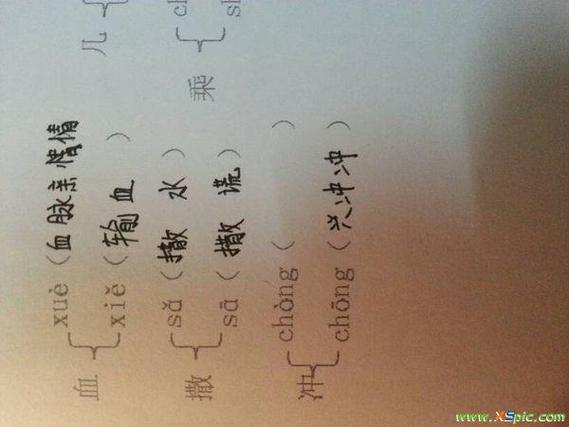 血
xuè（血脉亲情
xiě（输血）
撒
sǎ（撒水）
sā（撒谎）
冲
chòng（ ）
chōng（兴冲冲）
几
乘
ch
sh
www.XSpic.com